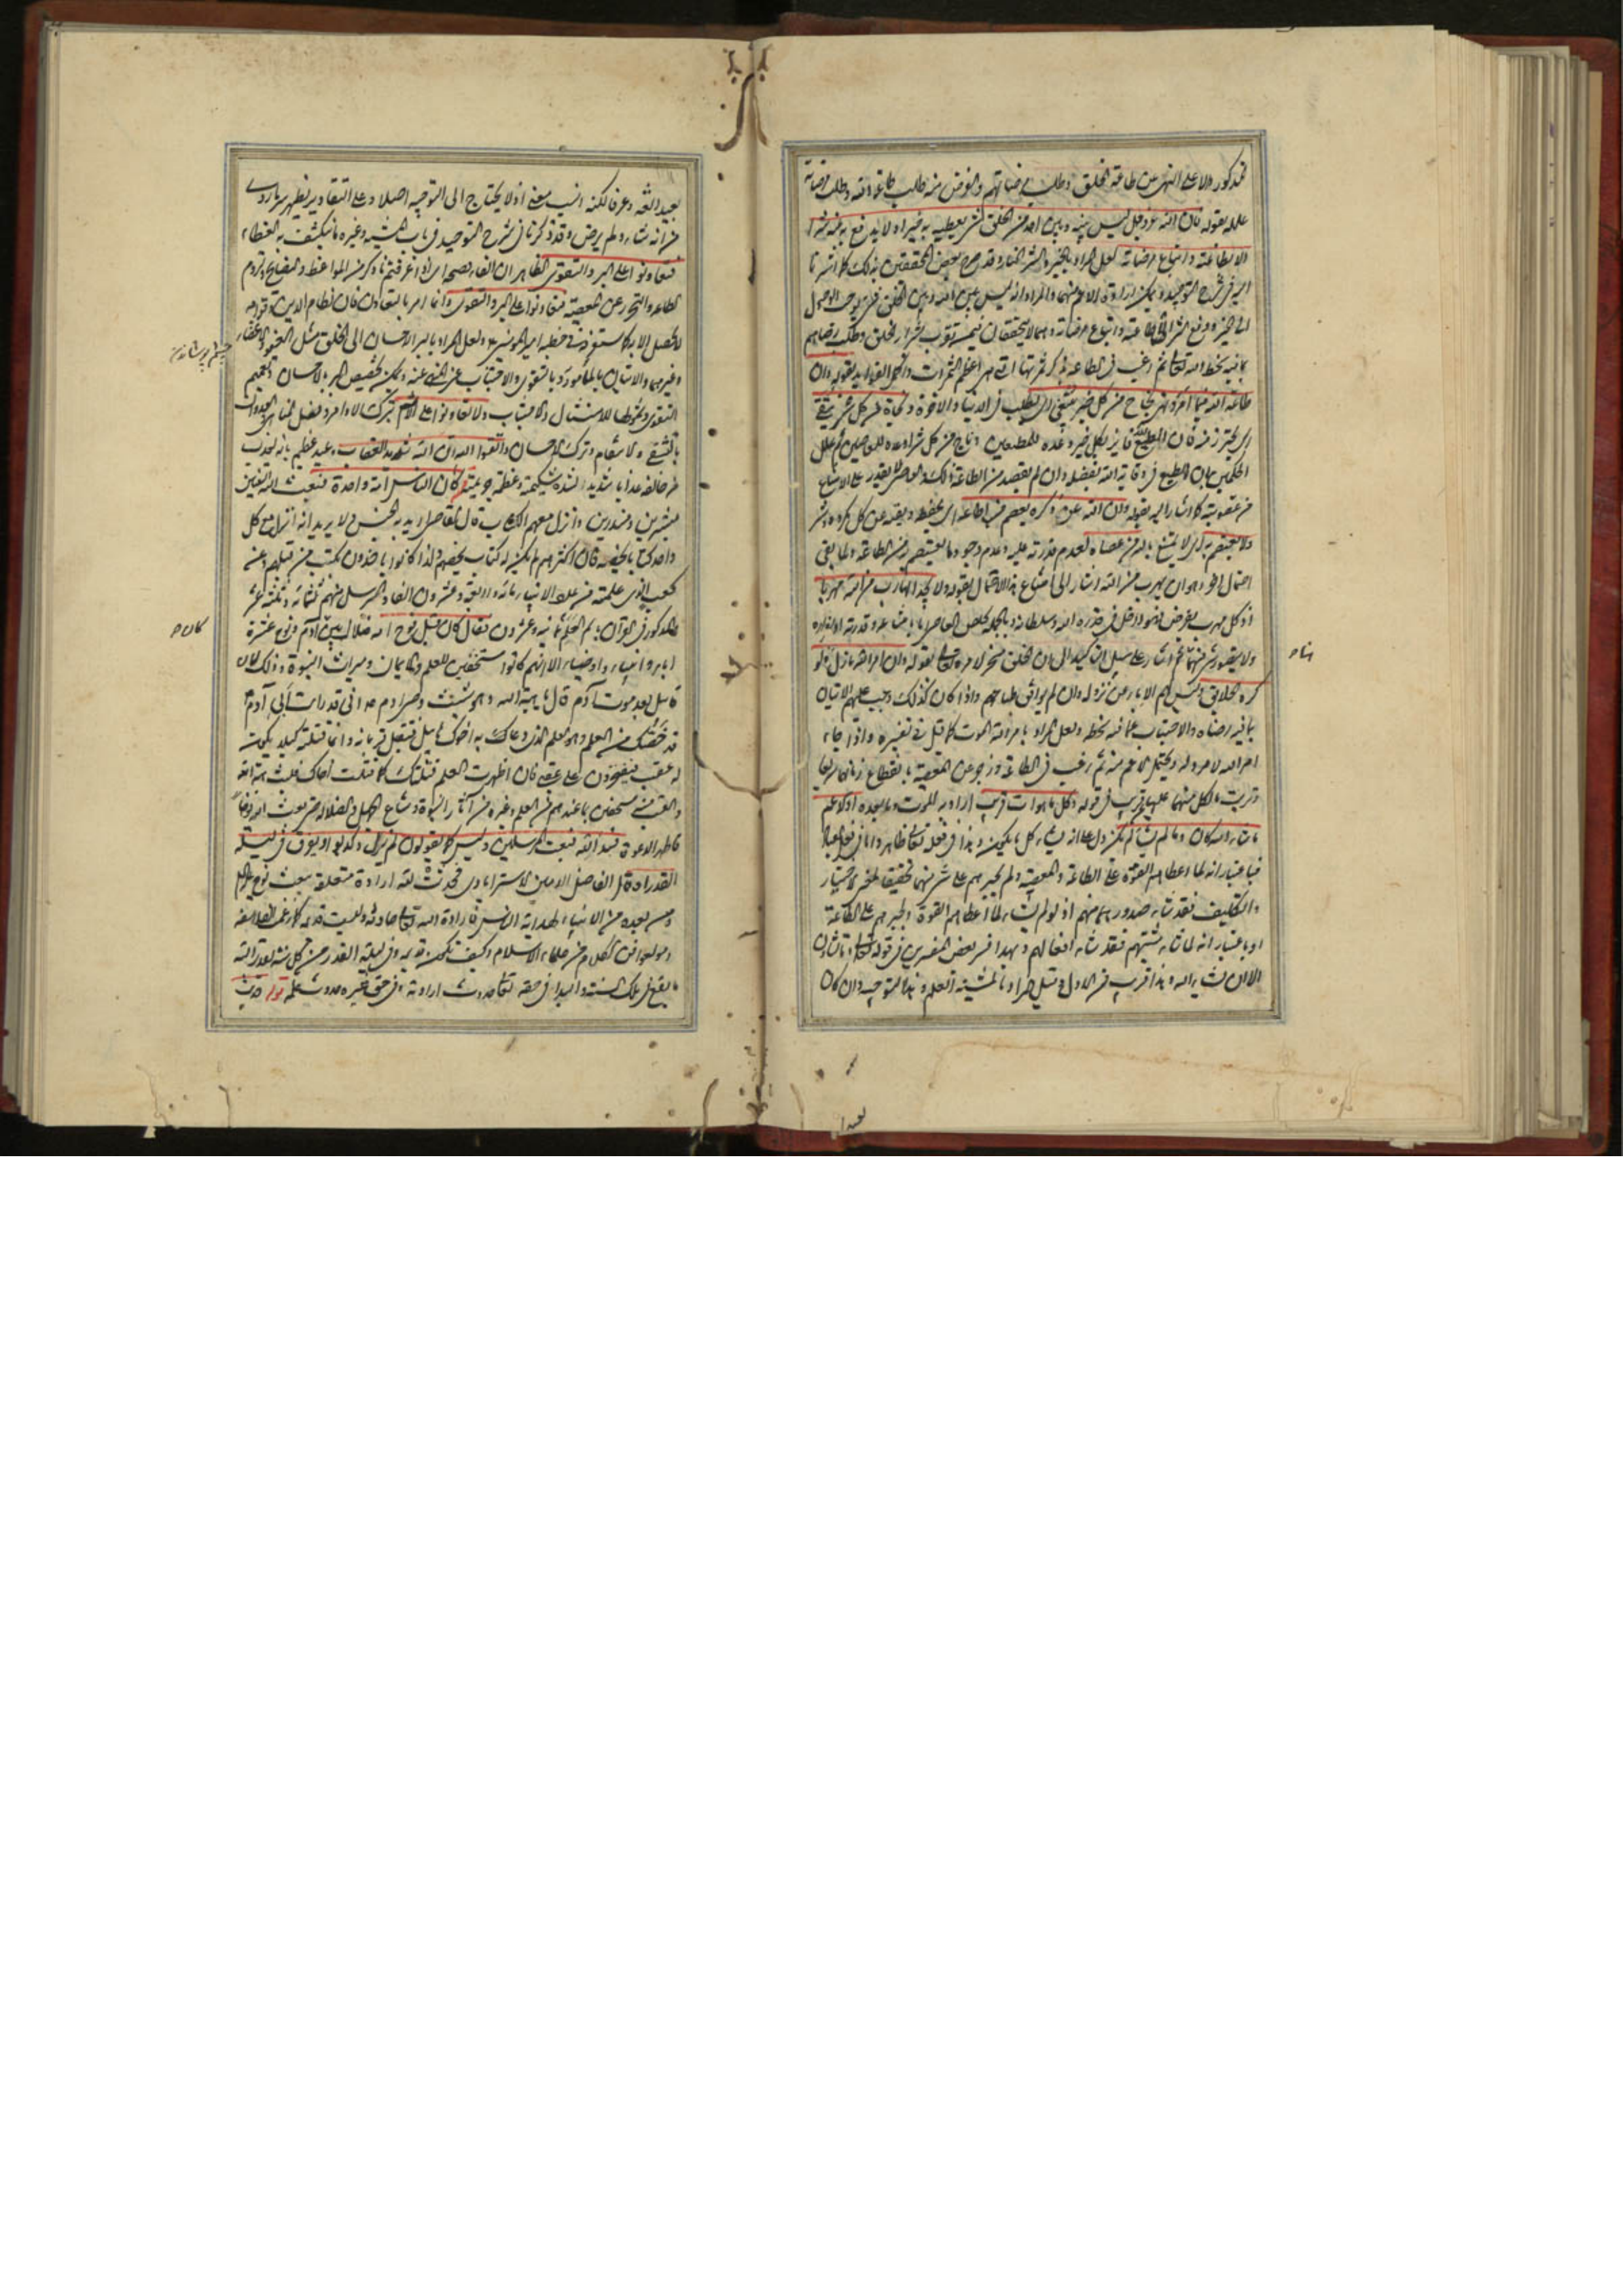 المذكور دلالة على النهى عن طاعة الخلق وطلب مرضاتهم والغرض منه طلب طاعة الله وطلب مرضاته
علله بقوله فان الله عز وجل ليس بينه وبين احد من الخلق شئ يعطيه به خيرا ولا يدفع به عنه شرا
الا بطاعته واتباع مرضاته لعل المراد بالخير والشر وقد صرح بعض المحققين بذلك كما اشرنا
اليه فى شرح التوحيد ويمكن ارادة الاعم منهما والمراد انه ليس بين الله وبين الخلق شئ يوجب الوصول
الى الخير ودفع الشر الا طاعته واتباع مرضاته وهما لا يتحققان فيمن تقرب بشرار الخلق وطلب رضاهم
بما فيه سخط الله تعالى ثم رغب فى الطاعة بذكر ثمرتها التى هى اعظم الثمرات واكمل الفوايد بقوله وان
طاعة الله فيما امر ونهى نجاح من كل خير يبتغى اى يطلب فى الدنيا والاخرة ونجاة من كل شر يتقى
اى يحترز منه فان المطيع فايز بكل خير وعده للمطيعين وناج من كل شر اوعده للعاصين ثم علل
الحكمين بان المطيع فى وقاية الله بفضله وان لم يقصد من الطاعة ذلك والعاصى لا يقدر على الامتناع
من عقوبته كما اشار اليه بقوله وان الله عز ذكره يعصم من اطاعه اى يحفظه ويقيه عن كل مكروه وشر
ولا يعتصم به اى لا يمتنع بالله من عصاه لعدم قدرته عليه وعدم وجود ما يعتصم به من الطاعة ولما بقى
احتمال اخر وهو ان يهرب من الله اشار الى امتناع هذا الاحتمال بقوله ولا يجد الهارب من الله مهربا
اذ كل مهرب يفرض فهو داخل فى قدرة الله وسلطانه وبالجملة تخلص العاصى اما بامتناعه وقدرته او بفراره
ولا يتصور شئ منهما ثم اشار على سبيل التاكيد الى ان الخلق مسخر لامره تعالى بقوله وان امر الله نازل ولو
كره الخلايق وليس لهم الاباء من نزوله وان لم يوافق طباعهم واذا كان كذلك وجب عليهم الاتيان
بما فيه رضاه والاجتناب عما فيه سخطه ولعل المراد بامر الله الموت كما قيل فى تفسيره واذا جاء
امر الله لا مرد له ويحتمل الاعم منه ثم رغب فى الطاعة وزجر عن المعصية بانقطاع زمانهما سريعا
وترتب ما لكل منهما عليهما قريب فى قوله وكل ما هو ات قريب اراد به الموت وما بعده او الاعم
ما شاء الله كان وما لم يشأ لم يكن دل على انه يشاء كل ما يكون وهذا فى فعله تعالى ظاهر واما فى فعل العباد
فباعتبار انه لما اعطاهم القوة على الطاعة والمعصية ولم يجبرهم على شئ منهما تحقيقا لمعنى الاختيار
والتكليف فقد شاء صدورهما منهم اذ لو لم يشاء لما اعطاهم القوة ولجبرهم على الطاعة
او باعتبار انه لما شاء مشيتهم فقد شاء افعالهم وبهذا فسر بعض المفسرين فى قوله تعالى وما تشاؤن
الا ان يشاء الله وهذا اقرب من الاول وقيل المراد بالمشية العلم وهذا التوجيه وان كان
بعيدا
بعيدا لغة وعرفا لكنه انسب معنى اذ لا يحتاج الى التوجيه اصلا وعلى التقادير يظهر سر ما روى
من انه شاء ولم يرض وقد ذكرنا فى شرح التوحيد فى باب المشية وغيره ما ينكشف به الغطاء
فتعاونوا على البر والتقوى الظاهر ان الفاء فصيحة اى اذا عرفتم ما ذكر من المواعظ والنصايح ولزوم
الطاعة والتحرز عن المعصية فتعاونوا على البر والتقوى وانما امر بالتعاون فان نظام الدين وقوامه
لا يحصل الا به كما ستعرفه فى خطبة امير المومنين ع ولعل المراد بالبر الاحسان الى الخلق مثل العفو والاعضاء
وغيرهما والاتيان بالمأمور به وبالتقوى والاجتناب عن المنهى عنه ويمكن تخصيص البر بالاحسان وتعميم
التقوى وشمولها للامتثال والاجتناب ولا تعاونوا على الاثم بترك الاوامر وفعل المناهى والعدوان
بالتشفى والانتقام وترك الاحسان واتقوا الله ان الله شديد العقاب وعيد عظيم بانه يعذب
من خالفه عذابا شديدا لشدة شكيمته وعظمة جريمته قوله كان الناس امة واحدة فبعث الله النبيين
مبشرين ومنذرين وانزل معهم الكتاب قال القاضى يريد به الجنس ولا يريد انه انزل مع كل
واحد كتابا يخصه فان اكثرهم لم يكن له كتاب يخصهم وانما كانوا ياخذون بكتب من قبلهم وعن
كعب الذى علمته من عدد الانبياء مائة واربعة وعشرون الفا والمرسل منهم ثلثمائة وثلثة عشر
والمذكور فى القرآن باسم العلم ثمانية وعشرون فقال كان قبل نوح امة ضلال بين آدم ونوح عشرة
اباء وانبياء واوصياء الا انهم كانوا مستخفين للعلم والايمان وميراث النبوة وذلك لان
قابيل بعد موت آدم قال يا هبة الله وهو شيث وصى آدم ع انى قد رايت ابى آدم
قد خصك من العلم وهو العلم الذى دعا به اخوك هابيل فتقبل قربانه وانما قتلته لكيلا يكون
له عقب فيفتخرون على عقبى فان اظهرت العلم قتلتك كما قتلت اخاك فلبث هبة الله
والعقب منه مستخفين بما عندهم من العلم وغيره من آثار النبوة وشاع الجهل والضلالة حتى بعث الله نوحا
فاظهر الدعوة فبدا لله فبعث المرسلين وليس كما يقولون لم يزل وكذبوا يفرق فى ليلة
القدر اه قال الفاضل الامين الاسترابادى فحدثت لله ارادة متعلقة ببعث نوح ع
ومن بعده من الانبياء لهداية الناس فارادة الله تعالى حادثة وليست قديمة كما زعمت الفلاسفة
ومن وافقهم من علماء الاسلام وكيف تكون قديمة وفى ليلة القدر من كل سنة يقدر الله
ما يقع فى تلك السنة والبداء فى حقه تعالى حدوث ارادته وفى حق غيره حدوث علمه قوله حديث
كان ه